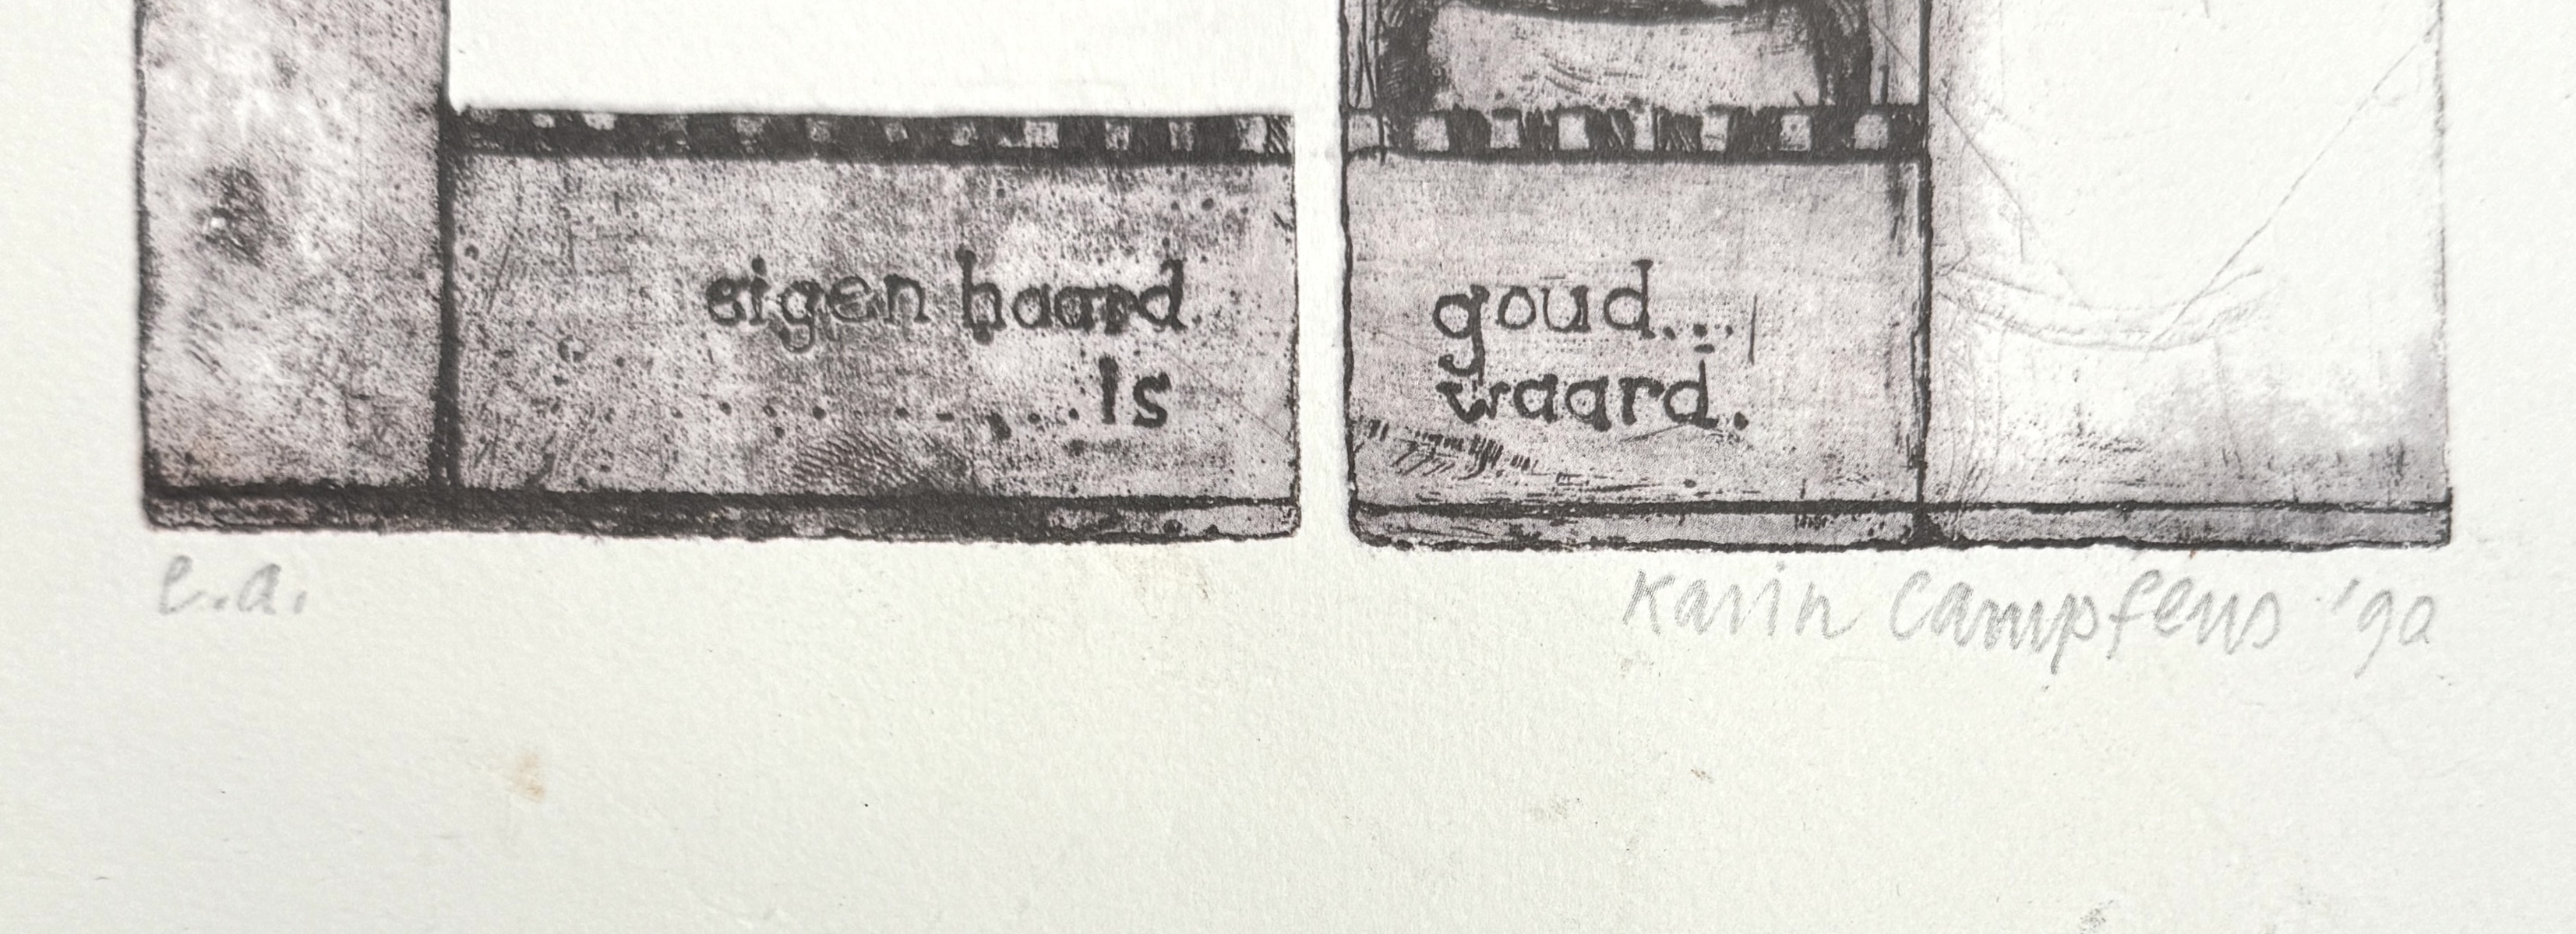 eigen haard
........... Is
goud...
waard.
e.a. Karin Campfens '90